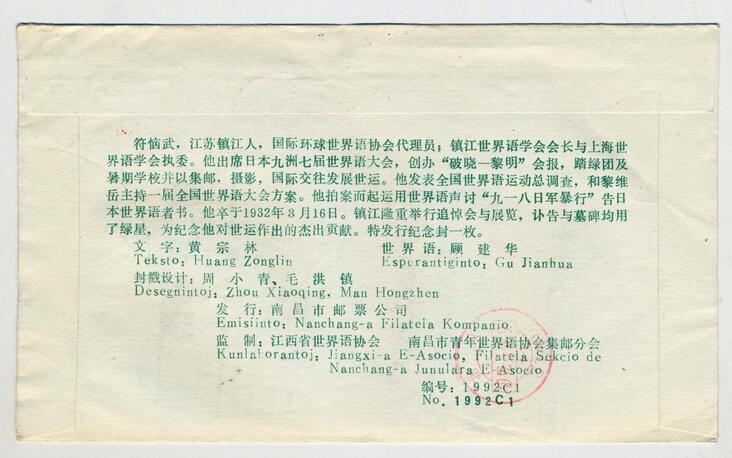 符恼武，江苏镇江人，国际环球世界语协会代理员；镇江世界语学会会长与上海世
界语学会执委。他出席日本九洲七届世界语大会，创办“破晓—黎明”会报，踏绿团及
暑期学校并以集邮，摄影，国际交往发展世运。他发表全国世界语运动总调查，和黎维
岳主持一届全国世界语大会方案。他拍案而起运用世界语声讨“九一八日军暴行”告日
本世界语者书。他卒于1932年3月16日。镇江隆重举行追悼会与展览，讣告与墓碑均用
了绿星，为纪念他对世运作出的杰出贡献。特发行纪念封一枚。
文字：黄宗林 世界语：顾建华
Teksto：Huang Zonglin Esperantiginto：Gu Jianhua
封戳设计：周小青、毛洪镇
Desegnintoj：Zhou Xiaoqing，Mao Hongzhen
发行：南昌市邮票公司
Emisiinto：Nanchang-a Filatela Kompanio
监制：江西省世界语协会 南昌市青年世界语协会集邮分会
Kunlaborantoj：Jiangxi-a E-Asocio，Filatela Sekcio de
Nanchang-a Junulara E-Asocio
编号：1992C1
No.1992C1